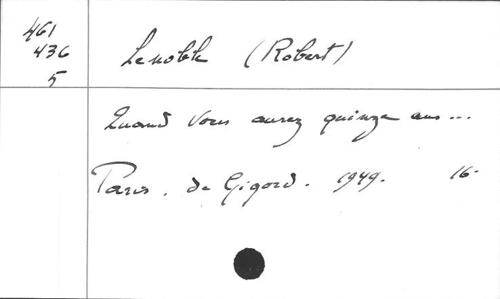 461
436
5
Lenoble (Robert)
Quand Vous aurez quinze ans...
Paris. de Gigord. 1949. 16-